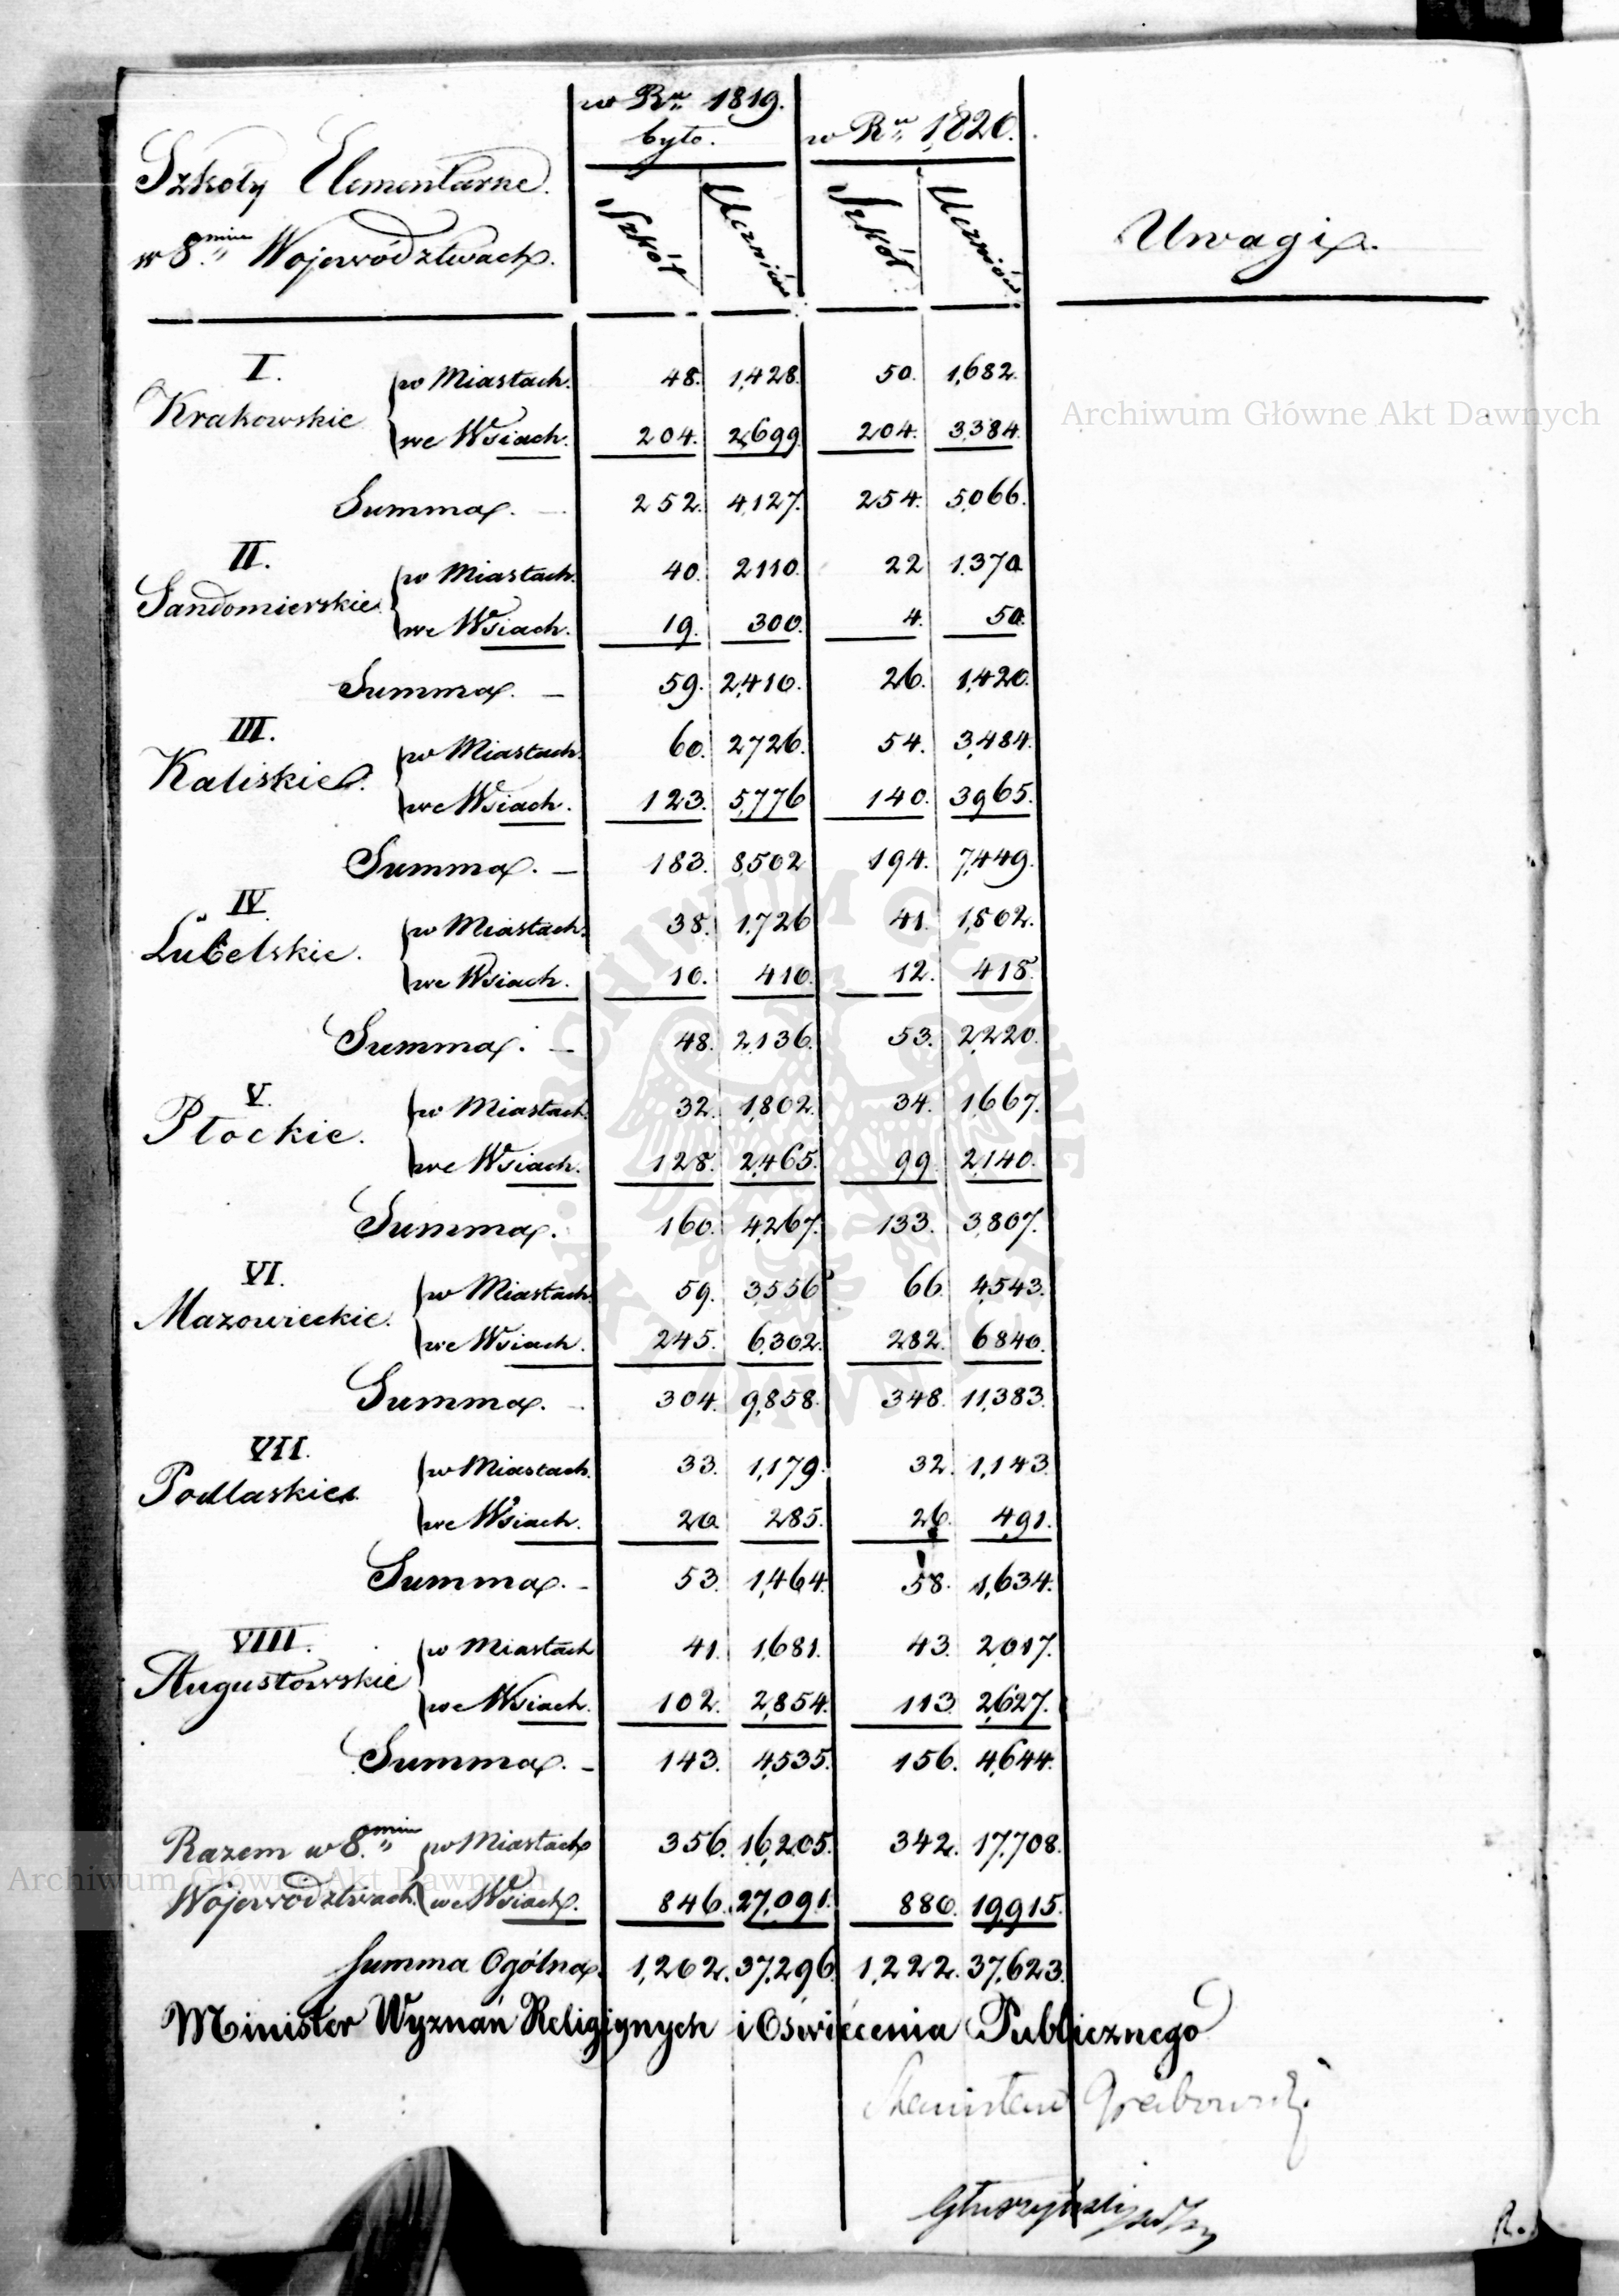 w Rᵘ 1819.
było.
w Rᵘ 1,820.
Szkoły Elementarne.
w 8miu Województwach.
Szkół
Uczniów
Szkół
Uczniów
Uwagi.
I.
Krakowskie
w Miastach. 48. 1,428. 50. 1,682.
we Wsiach. 204. 2,699 204. 3,384.
Summa. — 252. 4,127. 254. 5,066.
II.
Sandomierskie
w Miastach. 40. 2110. 22 1,370
we Wsiach. 19. 300. 4. 50.
Summa. — 59. 2,410. 26. 1,420.
III.
Kaliskie.
w Miastach. 60. 2726. 54. 3,484.
we Wsiach. 123. 5,776 140. 3965.
Summa. — 183. 8,502 194. 7,449.
IV.
Lubelskie.
w Miastach. 38. 1,726 41. 1,802.
we Wsiach. 10. 410. 12. 418.
Summa. — 48. 2,136. 53. 2,220.
V.
Płockie.
w Miastach. 32. 1,802. 34. 1,667.
we Wsiach. 128. 2,465. 99. 2,140.
Summa. 160. 4,267. 133. 3,807.
VI.
Mazowieckie.
w Miastach. 59. 3,556 66. 4,543.
we Wsiach. 245. 6,302. 282. 6840.
Summa. — 304. 9,858. 348. 11,383.
VII.
Podlaskie
w Miastach. 33. 1,179. 32. 1,143.
we Wsiach. 20 285. 26. 491.
Summa. — 53. 1,464. 58. 1,634.
VIII.
Augustowskie
w Miastach 41. 1,681. 43. 2,017.
we Wsiach. 102. 2,854. 113. 2,627.
Summa. — 143. 4,535. 156. 4,644.
Razem w 8miu w Miastach 356. 16,205. 342. 17,708.
Województwach we Wsiach. 846. 27,091. 880. 19,915.
Summa Ogólna. 1,202. 37,296. 1,222. 37,623.
Minister Wyznań Religiynych i Oświécenia Publicznego
Stanisław Grabowski
Głuszyński
R.
Archiwum Główne Akt Dawnych
Archiwum Główne Akt Dawnych
ARCHIWUM GŁÓWNE AKT DAWNYCH